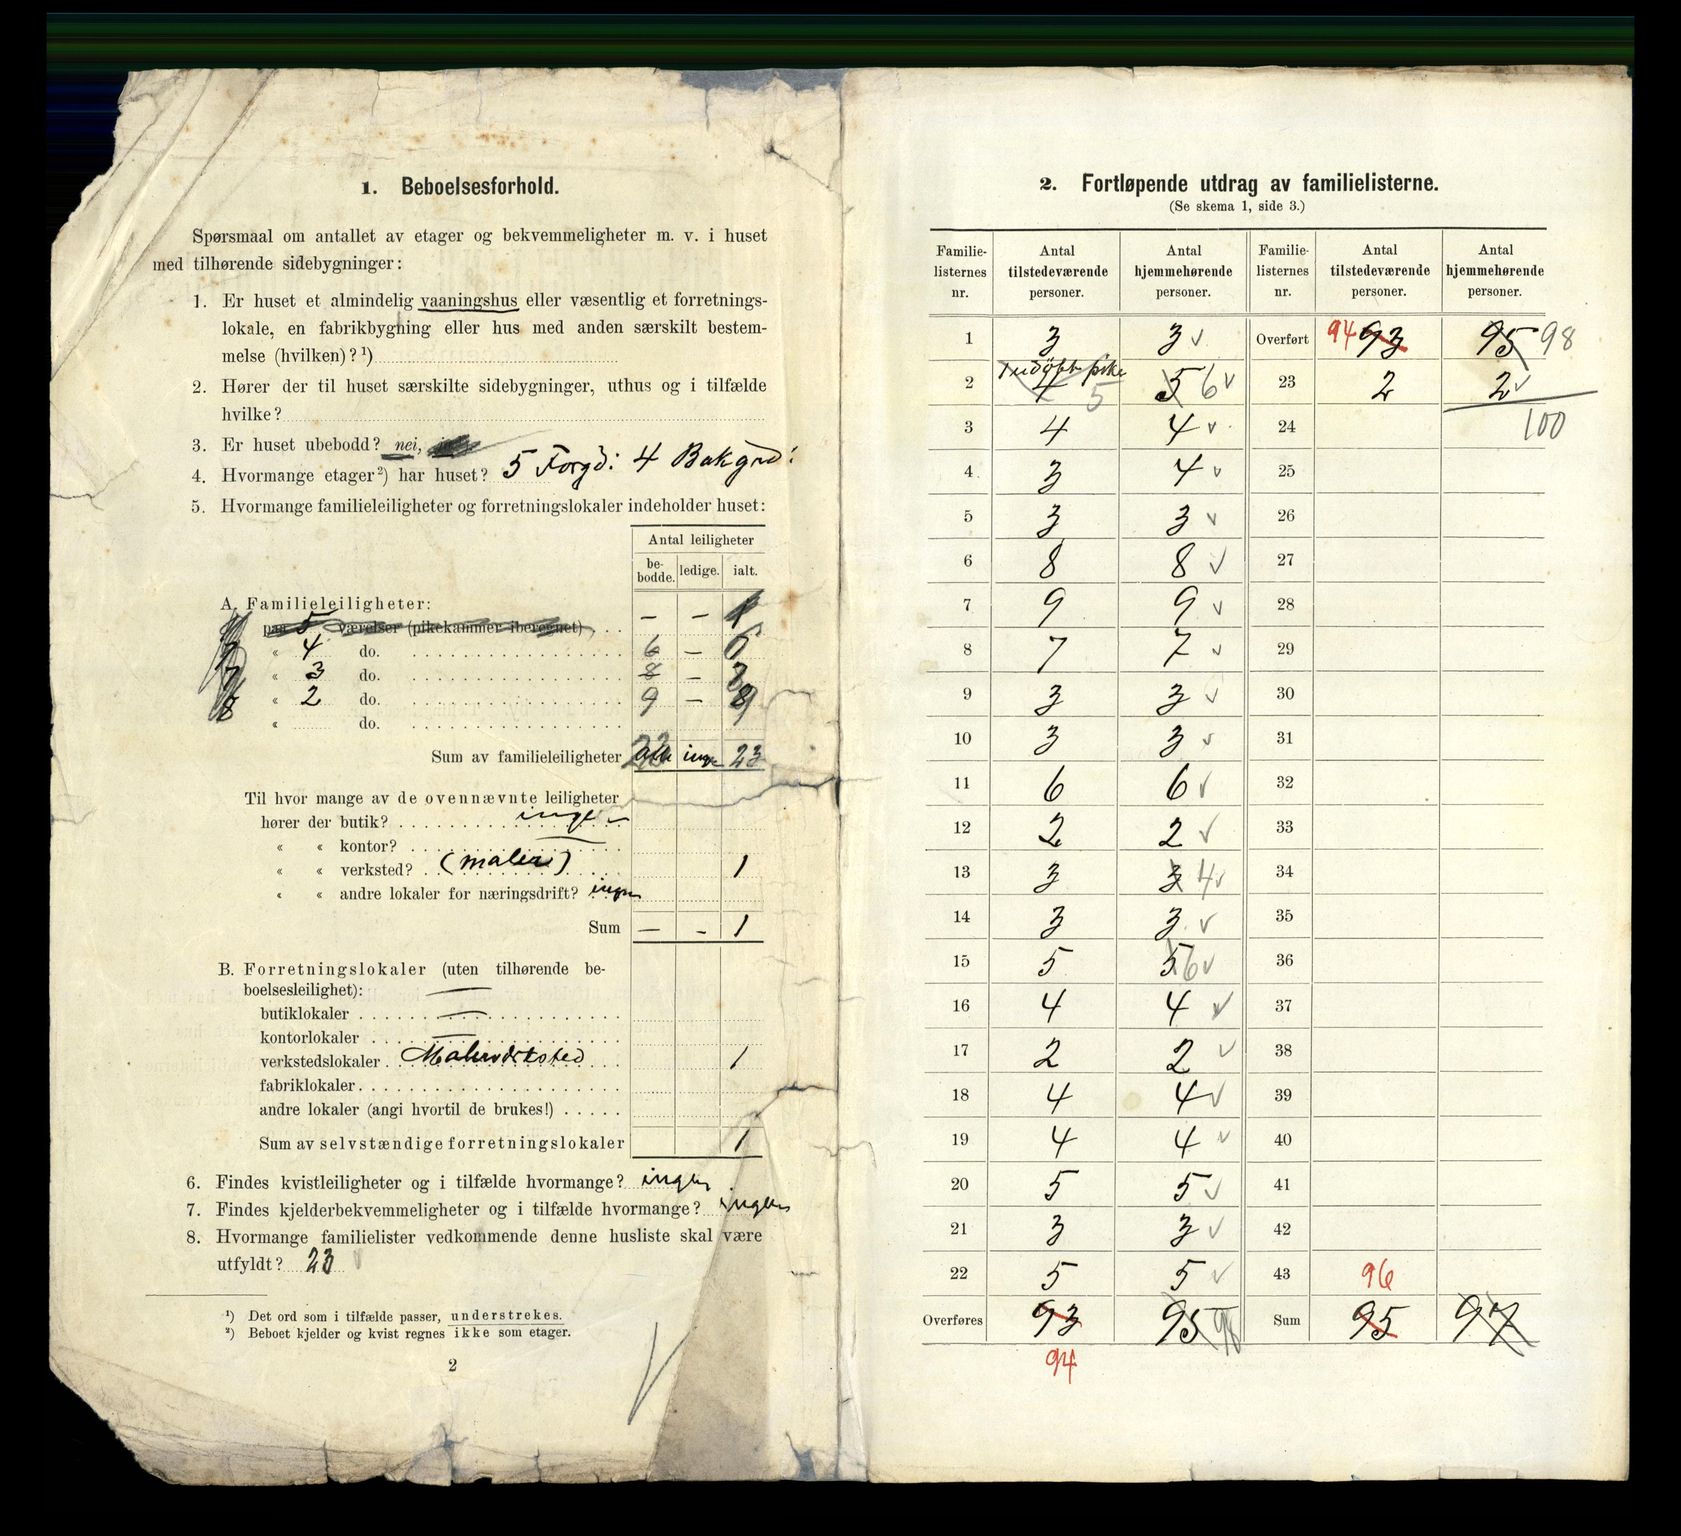 1. Beboelsesforhold.
Spørsmaal om antallet av etager og bekvemmeligheter m. v. i huset
med tilhørende sidebygninger:
1. Er huset et almindelig vaaningshus eller væsentlig et forretnings-
lokale, en fabrikbygning eller hus med anden særskilt bestem-
melse (hvilken)? ¹)
2. Hører der til huset særskilte sidebygninger, uthus og i tilfælde
hvilke?
3. Er huset ubebodd? nei,
4. Hvormange etager ²) har huset? 5 Forgd: 4 Bakgrd:
5. Hvormange familieleiligheter og forretningslokaler indeholder huset:
Antal leiligheter
be-bodde. ledige. ialt.
A. Familieleiligheter:
paa 5 værelser (pikekammer iberegnet) . . — — 1
« 4 do. 6 —
« 3 do. 8 —
8 « 2 do. 9 — 9
« do.
Sum av familieleiligheter 23 ingen 23
Til hvor mange av de ovennævnte leiligheter
hører der butik? ingen
« « kontor? —
« « verksted? (maler) 1
« « andre lokaler for næringsdrift? ingen
Sum — - 1
B. Forretningslokaler (uten tilhørende be-
boelsesleilighet): —
butiklokaler —
kontorlokaler —
verkstedslokaler Malerværksted 1
fabriklokaler
andre lokaler (angi hvortil de brukes!)
Sum av selvstændige forretningslokaler 1
6. Findes kvistleiligheter og i tilfælde hvormange? ingen
7. Findes kjelderbekvemmeligheter og i tilfælde hvormange? ingen
8. Hvormange familielister vedkommende denne husliste skal være
utfyldt? 23 v
¹) Det ord som i tilfælde passer, understrekes.
²) Beboet kjelder og kvist regnes ikke som etager.
2
2. Fortløpende utdrag av familielisterne.
(Se skema 1, side 3.)
Familie-listernes nr. Antal tilstedeværende personer. Antal hjemmehørende personer. Familie-listernes nr. Antal tilstedeværende personer. Antal hjemmehørende personer.
1 3 3 v Overført 94 93 95 98
2 5 5 6 v 23 2 2 v
3 4 4 v 24 100
4 3 4 v 25
5 3 3 v 26
6 8 8 v 27
7 9 9 v 28
8 7 7 v 29
9 3 3 v 30
10 3 3 v 31
11 6 6 v 32
12 2 2 v 33
13 3 3 4 v 34
14 3 3 v 35
15 5 5 6 v 36
16 4 4 v 37
17 2 2 v 38
18 4 4 v 39
19 4 4 v 40
20 5 5 v 41
21 3 3 v 42
22 5 5 v 43 96
Overføres 93 95 98 Sum 95 97
94